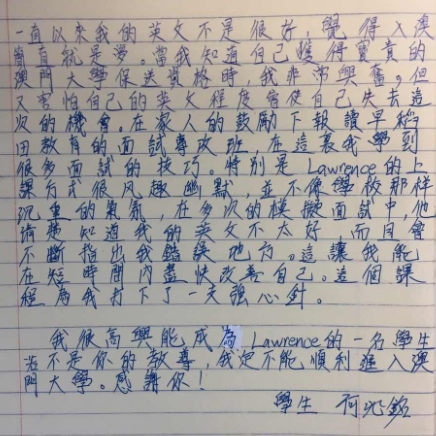 一直以來我的英文不是很好,覺得入澳
簡直就是夢。當我知道自己獲得寶貴的
澳門大學保送資格時,我非常興奮。但
又害怕自己的英文程度會使自己失去這
次的機會。在家人的鼓勵下報讀早稻
田教育的面試專改班,在這裏我學到
很多面試的技巧。特別是Lawrence的上
課方式很風趣幽默,並不像學校那樣
沉重的氣氛,在多次的模擬面試中,他
清楚知道我的英文不太好,而且會
不斷指出我錯誤地方。這讓我能
在短時間內盡快改善自己。這個課
程為我打下了一支強心針。
我很高興能成為Lawrence的一名學生
若不是你的教導,我定不能順利進入澳
門大學。感謝你!
學生 何兆銘